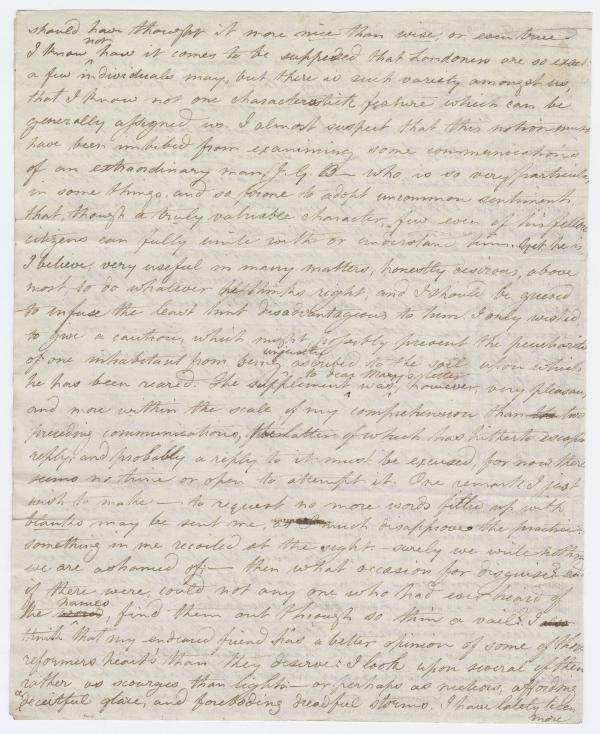 should have thought it more nice than wise, or even true.
I know not how it comes to be supposed that Londoners are so exact
a few individuals may, but there is such variety amongst us,
that I know not one characteristick feature which can be
generally assigned us. I almost suspect that this notion must
have been imbibed from examining some communications
of an extraordinary man, J. G. B— who is so very particular
in some things, and so prone to adopt uncommon sentiments,
that, though a truly valuable character, few even of his fellow
citizens can fully unite with or understand him. Yet he is,
I believe, very useful in many matters, honestly desirous, above
most, to do whatever he thinks right, and I should be grieved
to infuse the least hint disadvantageous to him. I only wished
to give a caution, which might possibly prevent the peculiarities
of one inhabitant from being unjustly ascribed to the soil upon which
he has been reared. The supplement to dear Mary's letter was, however, very pleasant,
and more within the scale of my comprehension than two
preceding communications, the latter of which has hitherto escaped
reply, and probably a reply to it must be excused, for now there
seems no time or open to attempt it. One remark I just
wish to make — to request no more words filled up with
blanks may be sent me, much disapprove the practice:
something in me recoiled at the sight — surely we write nothing
we are ashamed of; — then what occasion for disguise? and
if there were, could not any one who had ever heard of
the names, find them out through so thin a vail? I
think that my endeared friend has a better opinion of some of those
reformers hearts than they deserve: I look upon several of them
rather as scourges than lights — or perhaps as meteors, affording
a deceitful glare, and foreboding dreadful storms. I have lately been
more